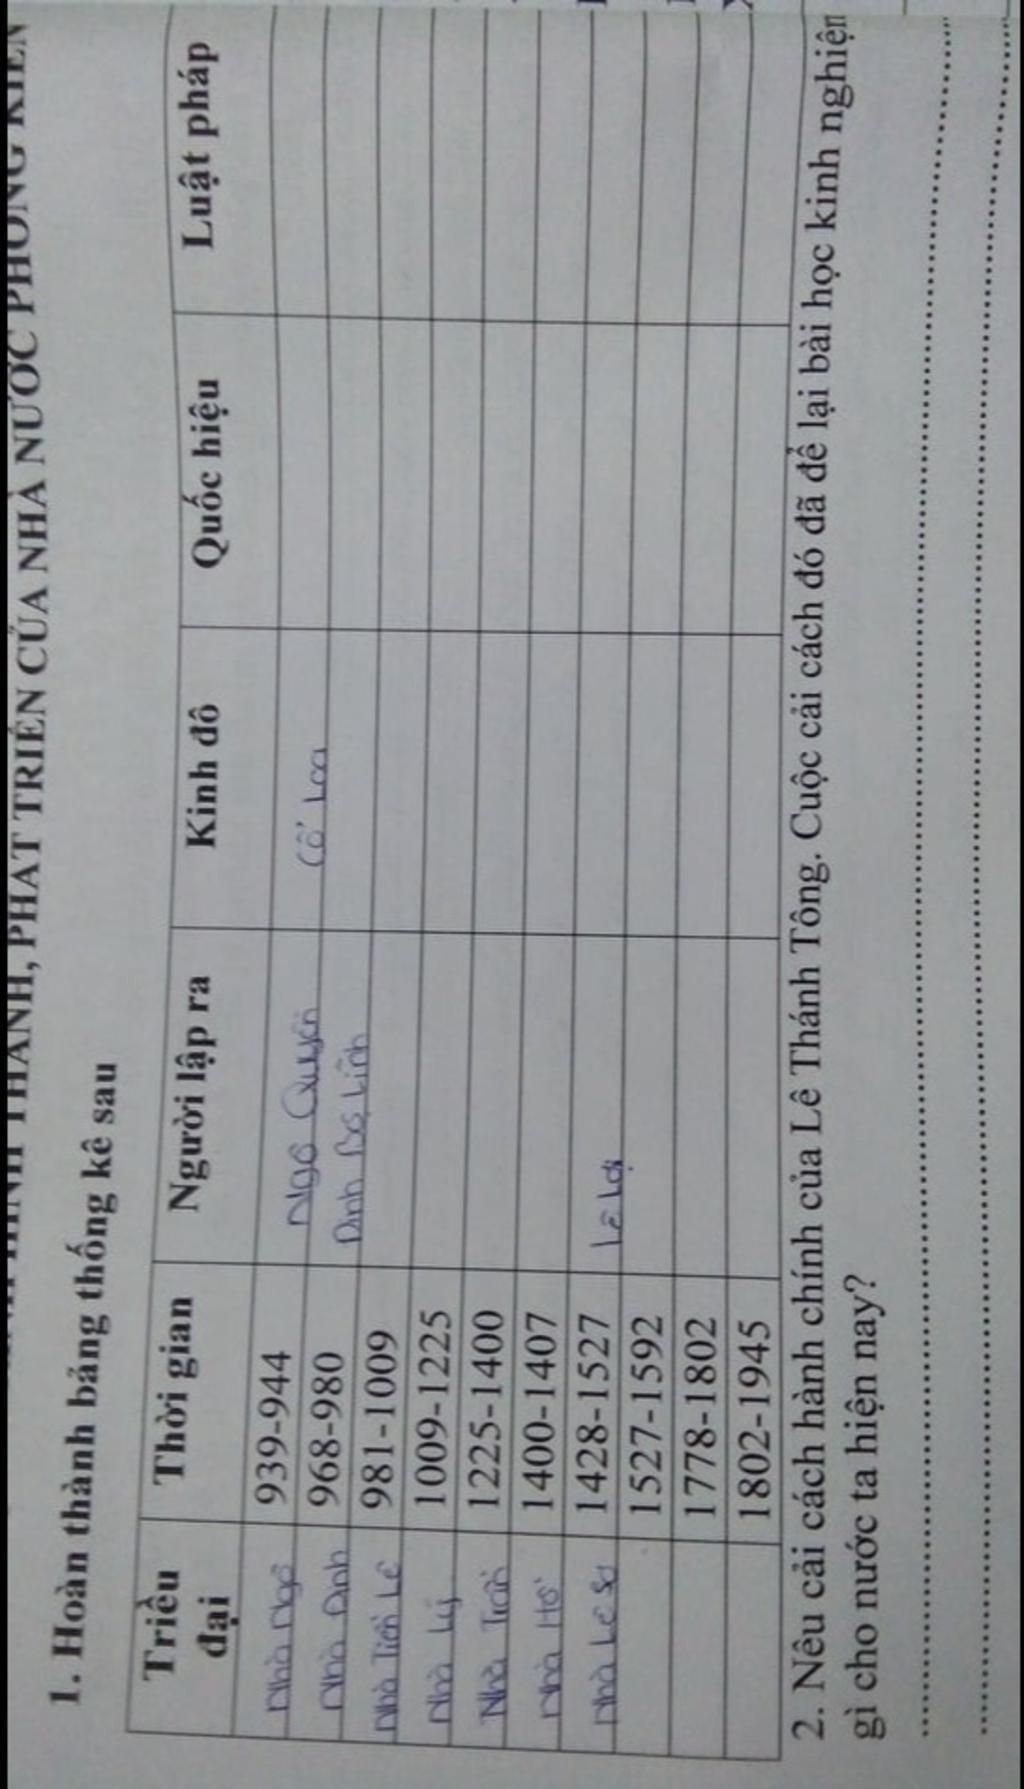 THÀNH, PHÁT TRIỂN CỦA NHÀ NƯỚC PHONG KIẾN
1. Hoàn thành bảng thống kê sau
Triều đại Thời gian Người lập ra Kinh đô Quốc hiệu Luật pháp
Nhà Ngô 939-944 Ngô Quyền Cổ Loa
Nhà Đinh 968-980 Đinh Bộ Lĩnh
Nhà Tiền Lê 981-1009
Nhà Lý 1009-1225
Nhà Trần 1225-1400
Nhà Hồ 1400-1407
Nhà Lê Sơ 1428-1527 Lê Lợi
1527-1592
1778-1802
1802-1945
2. Nêu cải cách hành chính của Lê Thánh Tông. Cuộc cải cách đó đã để lại bài học kinh nghiệm
gì cho nước ta hiện nay?